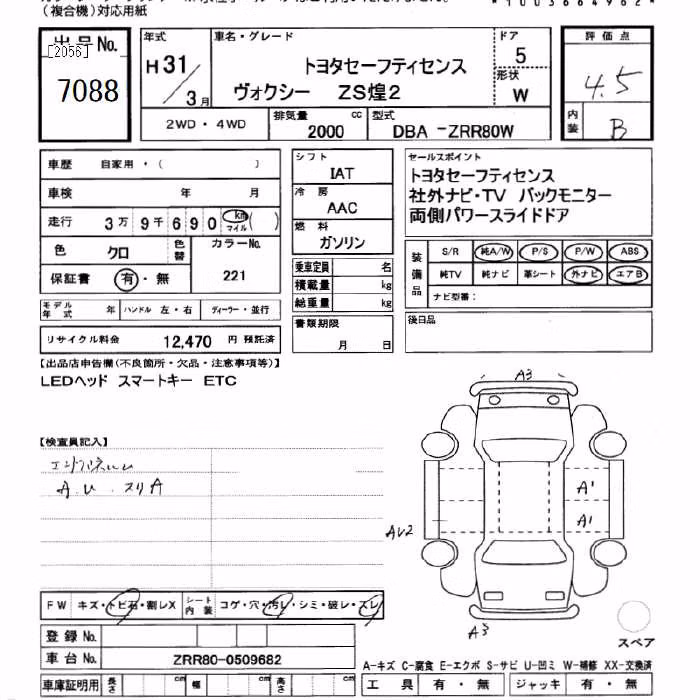 (複合機)対応用紙
*1003664962*
出品No.
[2056]
7088
年式
H31/3月
車名・グレード
トヨタセーフティセンス
ヴォクシー ZS煌2
ドア
5
形状
W
評価点
4.5
内装
B
2WD・4WD
排気量
2000 cc
型式
DBA -ZRR80W
車歴 自家用・( )
車検 年 月
走行 3万9千690 km マイル ( )
色 クロ
色替
カラーNo.
221
保証書 有・無
モデル年式 年 ハンドル 左・右 ディーラー・並行
リサイクル料金 12,470 円 預託済
シフト
IAT
冷房
AAC
燃料
ガソリン
乗車定員 名
積載量 kg
総重量 kg
書類期限
月 日
セールスポイント
トヨタセーフティセンス
社外ナビ・TV バックモニター
両側パワースライドドア
装備品
S/R 純A/W P/S P/W ABS
純TV 純ナビ 革シート 外ナビ エアB
ナビ型番:
後日品
【出品店申告欄(不良箇所・欠品・注意事項等)】
LEDヘッド スマートキー ETC
【検査員記入】
A.U スリA
A3
A1
A1
AU2
A3
スペア
FW キズ・トビ石・割レX
シート内装 コゲ・穴・汚レ・シミ・破レ・スレ
登録No.
車台No. ZRR80-0509682
車庫証明用 長さ cm 幅 cm 高さ cm
A-キズ C-腐食 E-エクボ S-サビ U-凹ミ W-補修 XX-交換済
工具 有・無 ジャッキ 有・無